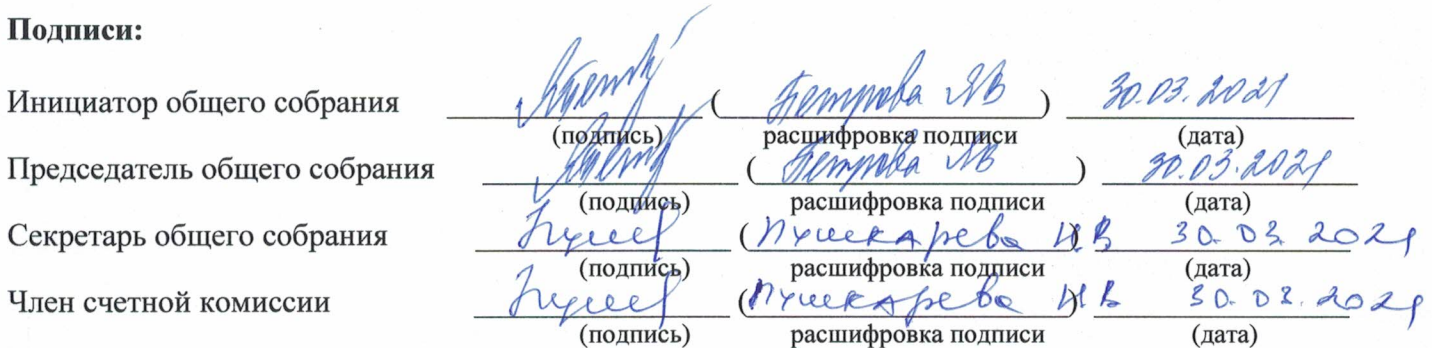 Подписи:
Инициатор общего собрания ( Петрова ЯВ ) 30.03.2021
(подпись) расшифровка подписи (дата)
Председатель общего собрания ( Петрова ЯВ ) 30.03.2021
(подпись) расшифровка подписи (дата)
Секретарь общего собрания (Пушкарева Н.В) 30.03.2021
(подпись) расшифровка подписи (дата)
Член счетной комиссии (Пушкарева Н В) 30.03.2021
(подпись) расшифровка подписи (дата)